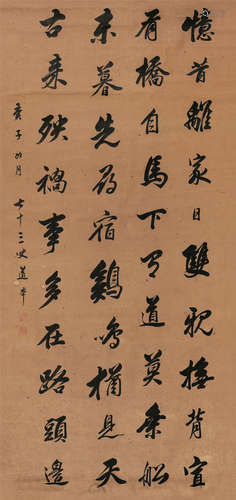 憶昔離家日雙親撫背宣
有橋自馬下有道莫乘船
未暮先尋宿鷄鳴猶見天
古來殃禍事多在路頭邊
庚子如月 七十三叟道